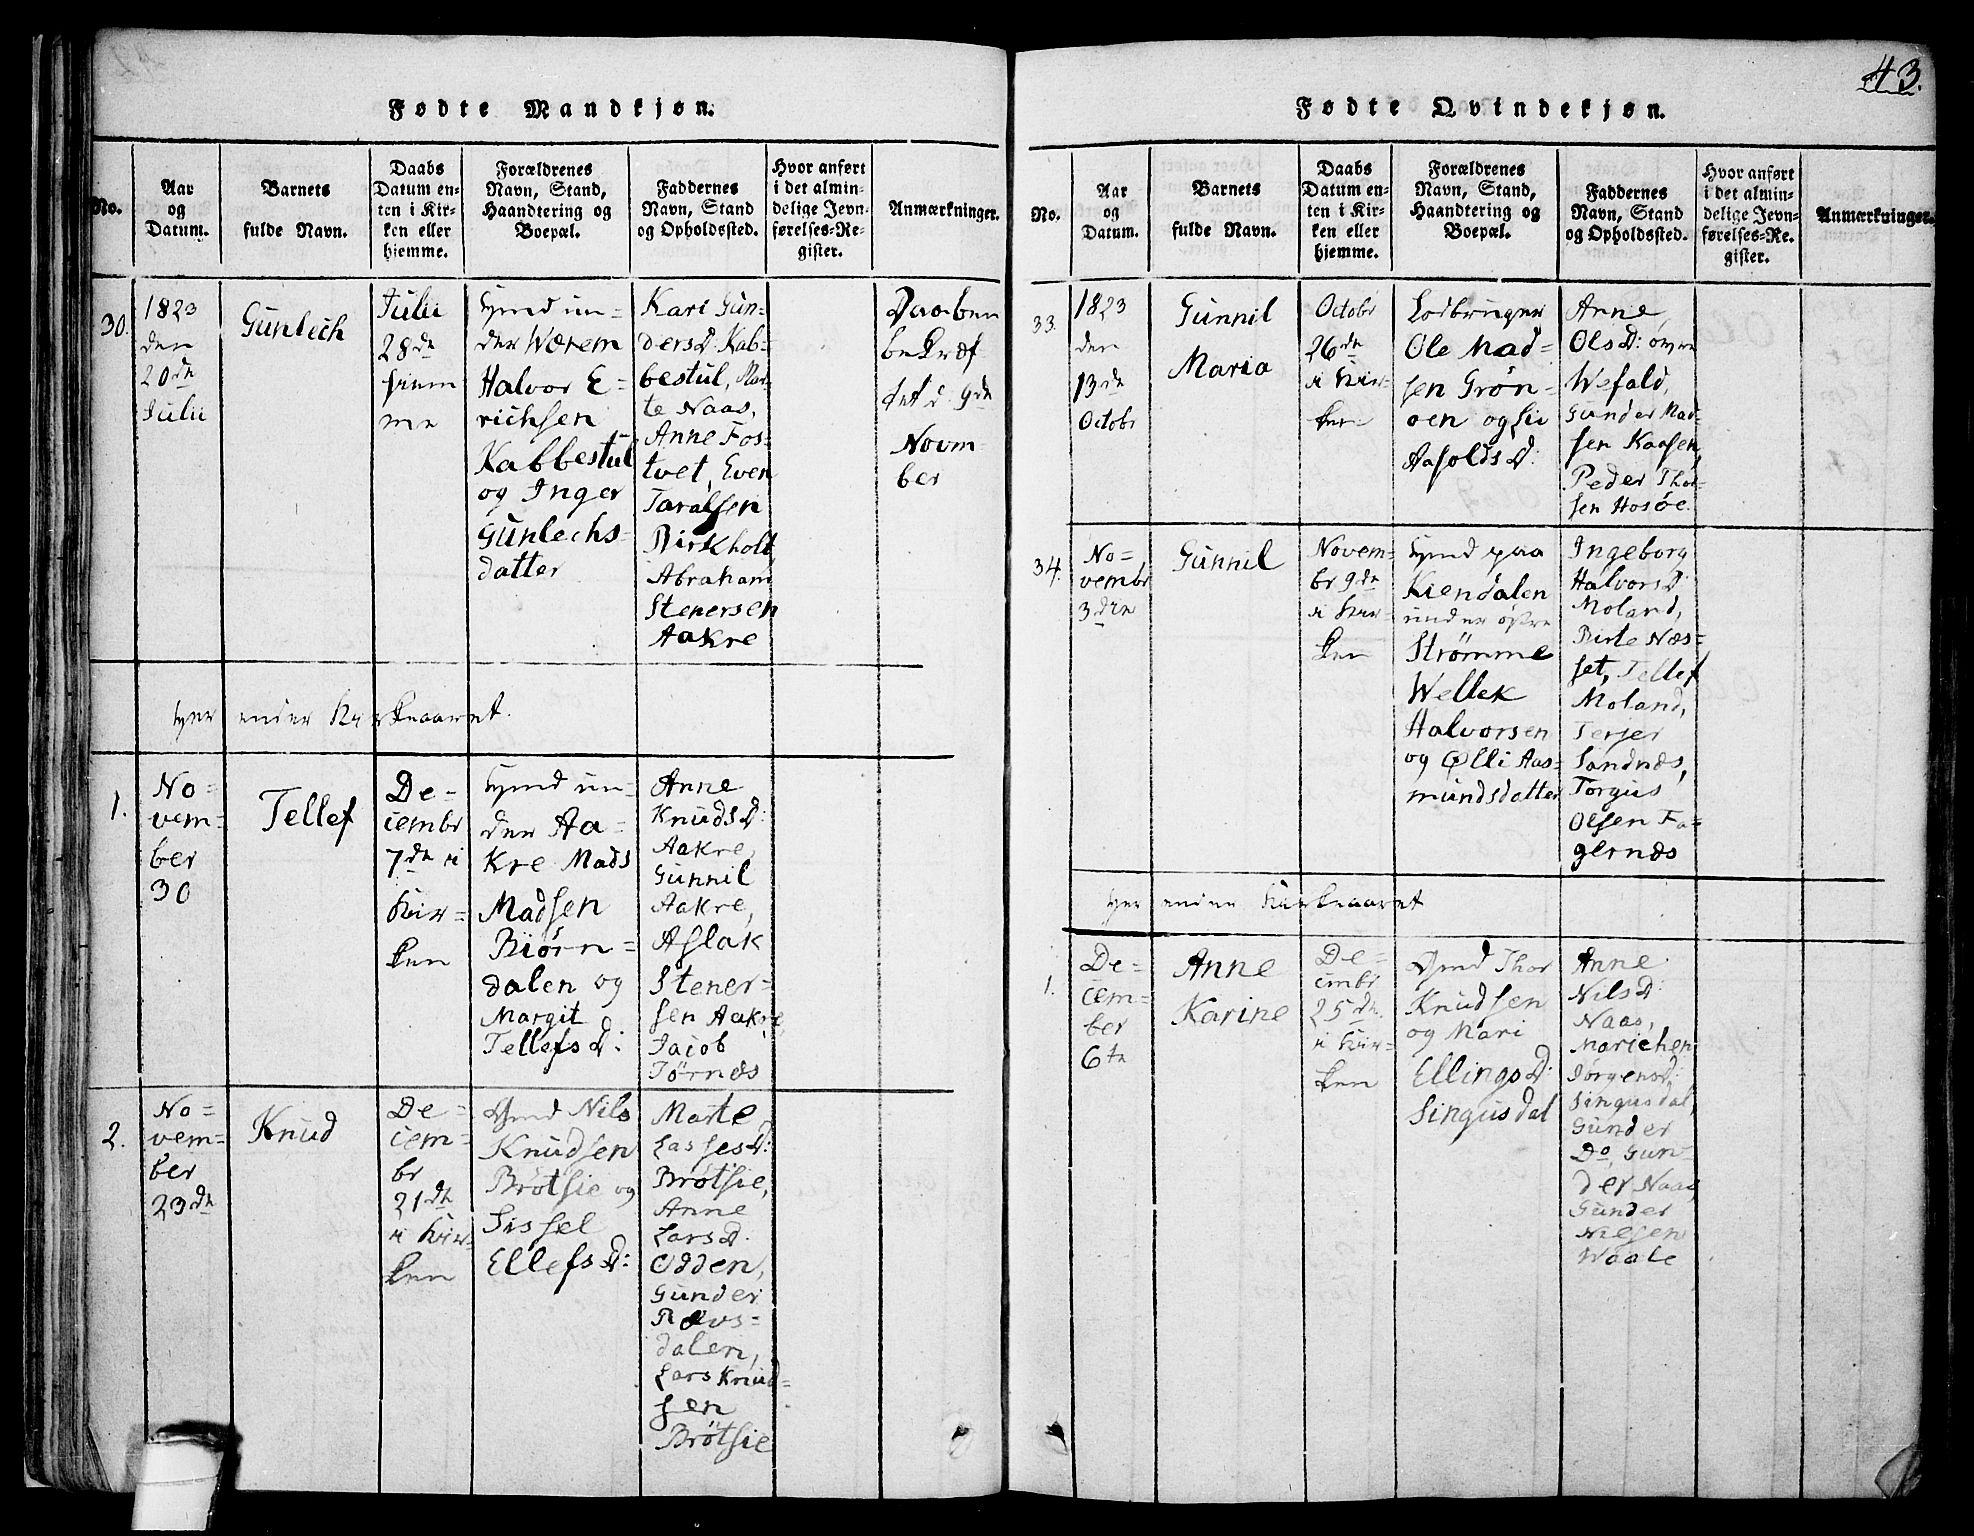 Fødte Mandkjøn.
No.
Aar
og
Datum.
Barnets
fulde Navn.
Daabs
Datum en-
ten i Kir-
ken eller
hjemme.
Forældrenes
Navn, Stand,
Haandtering og
Boepæl.
Faddernes
Navn, Stand
og Opholdssted.
Hvor anført
i det almin-
delige Jevn-
førelses-Re-
gister.
Anmærkninger.
30.
1823
den
20de
Julii
Gunlech
Julii
28de
hiem
me
un-
der Wærem
Halvor E-
richsen
Kabbestul
og Inger
Gunlechs-
datter
Kari Gun-
dersD: Kab-
bestul, Mar-
te Naas,
Anne Fos-
tvet, Even
Taralsen
Birkholt
Abraham
Stenersen
Aakre
Daaben
bekræf-
tet d. 9de
Novm-
ber
Her ender Kirkeaaret.
1.
No-
vem-
ber
30
Tellef
De-
cembr
7de i
Kir-
ken
un-
der Aa-
kre Mads
Madsen
Biørn-
dalen og
Margit
TellefsD:
Anne
KnudsD:
Aakre,
Gunnil
Aakre,
Aslak
Stener-
sen Aakre,
Jacob
Tørnæs
2.
No-
vem-
ber
23de
Knud
De-
cem-
br
21de
i Kir-
ken
Nils
Knudsen
Brøtsie og
Sissel
EllefsD:
Marte
LassesD:
Brøtsie,
Anne
LarsD.
Odden,
Gunder
Ravs-
dalen,
Lars Knud-
sen
Brøtsie
43.
Fødte Qvindekjøn.
No.
Aar
og
Datum.
Barnets
fulde Navn.
Daabs
Datum en-
ten i Kir-
ken eller
hjemme.
Forældrenes
Navn, Stand,
Haandtering og
Boepæl.
Faddernes
Navn, Stand
og Opholdssted.
Hvor anført
i det almin-
delige Jevn-
førelses-Re-
gister.
Anmærkninger.
33.
1823
den
13de
Octobr
Gunnil
Maria
Octobr
26de
i Kir-
ken
Lodbruger
Ole Mad-
sen Grøn-
oen og Sii
AasoldsD:
Anne
OlsD: øvre
Wefald,
Gunder Mad-
sen Kaasen,
Peder Thor-
sen Hosøe.
34.
No-
vembr
3die
Gunnil
Novem-
br 9de
i Kir-
ken
paa
Kiendalen
under østre
Strømme
Wellek
Halvorsen
og Olli Aas-
mundsdatter
Ingeborg
HalvorsD:
Moland,
Birte Næs-
set, Tellef
Moland,
Terjer
Sandnæs,
Torgus
Olsen Fa-
gernæs
Her ender Kirkeaaret
1.
De-
cem-
ber
6te
Anne
Karine
De-
cmbr
25de
i Kir-
ken
Thor
Knudsen
og Mari
EllingsD:
Singusdal
Anne
NilsD:
Naas,
Marichen
JørgensD:
Singusdal,
Gunder
Do, Gun-
der Naas,
Gunder
Nielsen
Waale